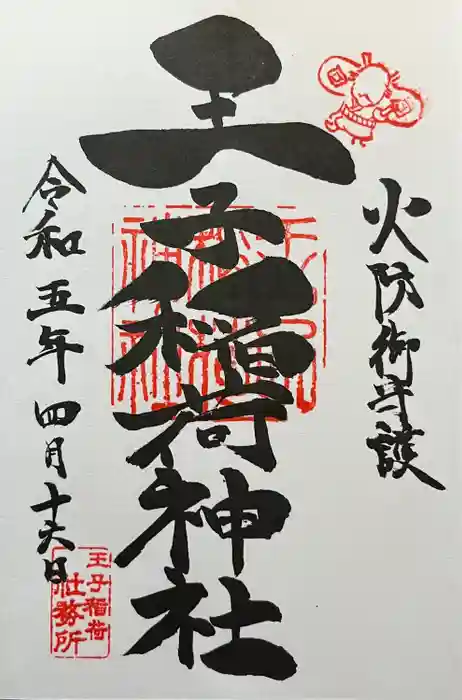 火防御守護
王子稲荷神社
令和五年四月十六日
王子稲荷
社務所